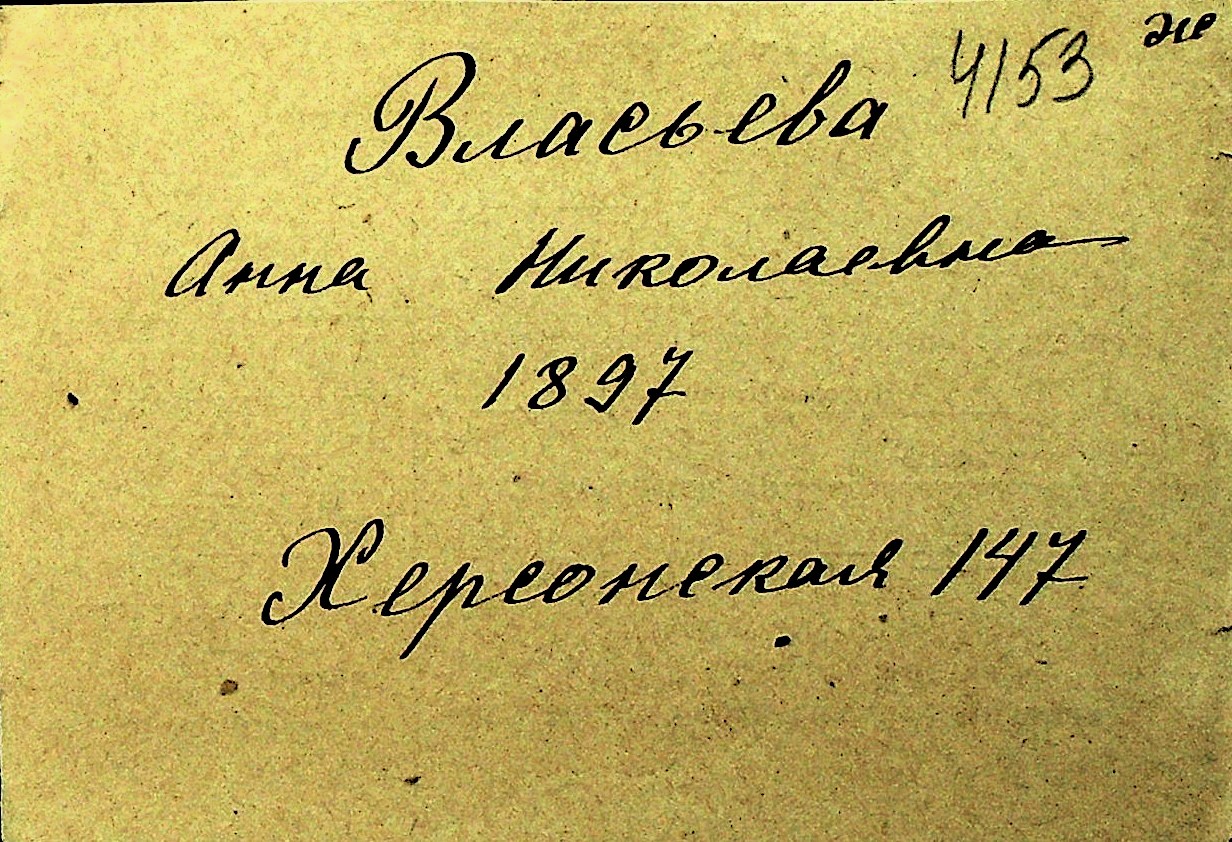 Власьева 4153 ж
Анна Николаевна
1897
Херсонская 147